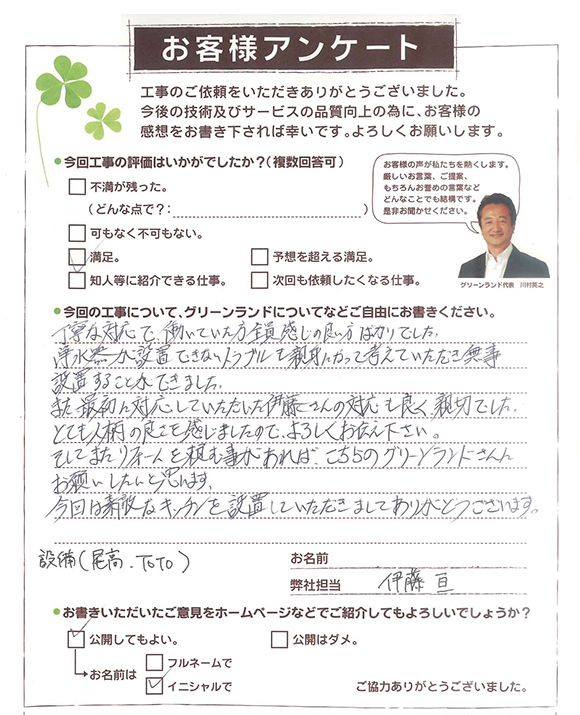 お客様アンケート
工事のご依頼をいただきありがとうございました。
今後の技術及びサービスの品質向上の為に、お客様の
感想をお書き下されば幸いです。よろしくお願いします。
●今回工事の評価はいかがでしたか？（複数回答可）
不満が残った。
（どんな点で？：　）
可もなく不可もない。
満足。
予想を超える満足。
知人等に紹介できる仕事。
次回も依頼したくなる仕事。
お客様の声が私たちを熱くします。
厳しいお言葉、ご提案、
もちろんお誉めの言葉など
どんなことでも結構です。
是非お聞かせください。
グリーンランド代表　川村英之
●今回の工事について、グリーンランドについてなどご自由にお書きください。
丁寧な対応で、働いていた方全員感じの良い方ばかりでした。
浄水器が設置できないトラブルも親身になって考えていただき無事
設置することができました。
また最初に対応していただいた伊藤さんの対応も良く、親切でした。
とても人柄の良さを感じましたので、よろしくお伝え下さい。
そしてまたリフォームを頼む事があれば、こちらのグリーンランドさんに
お願いしたいと思います。
今回は素敵なキッチンを設置していただきましてありがとうございます。
設備（尾高、TOTO）
お名前
弊社担当　伊藤 亘
●お書きいただいたご意見をホームページなどでご紹介してもよろしいでしょうか？
公開してもよい。
公開はダメ。
お名前は
フルネームで
イニシャルで
ご協力ありがとうございました。